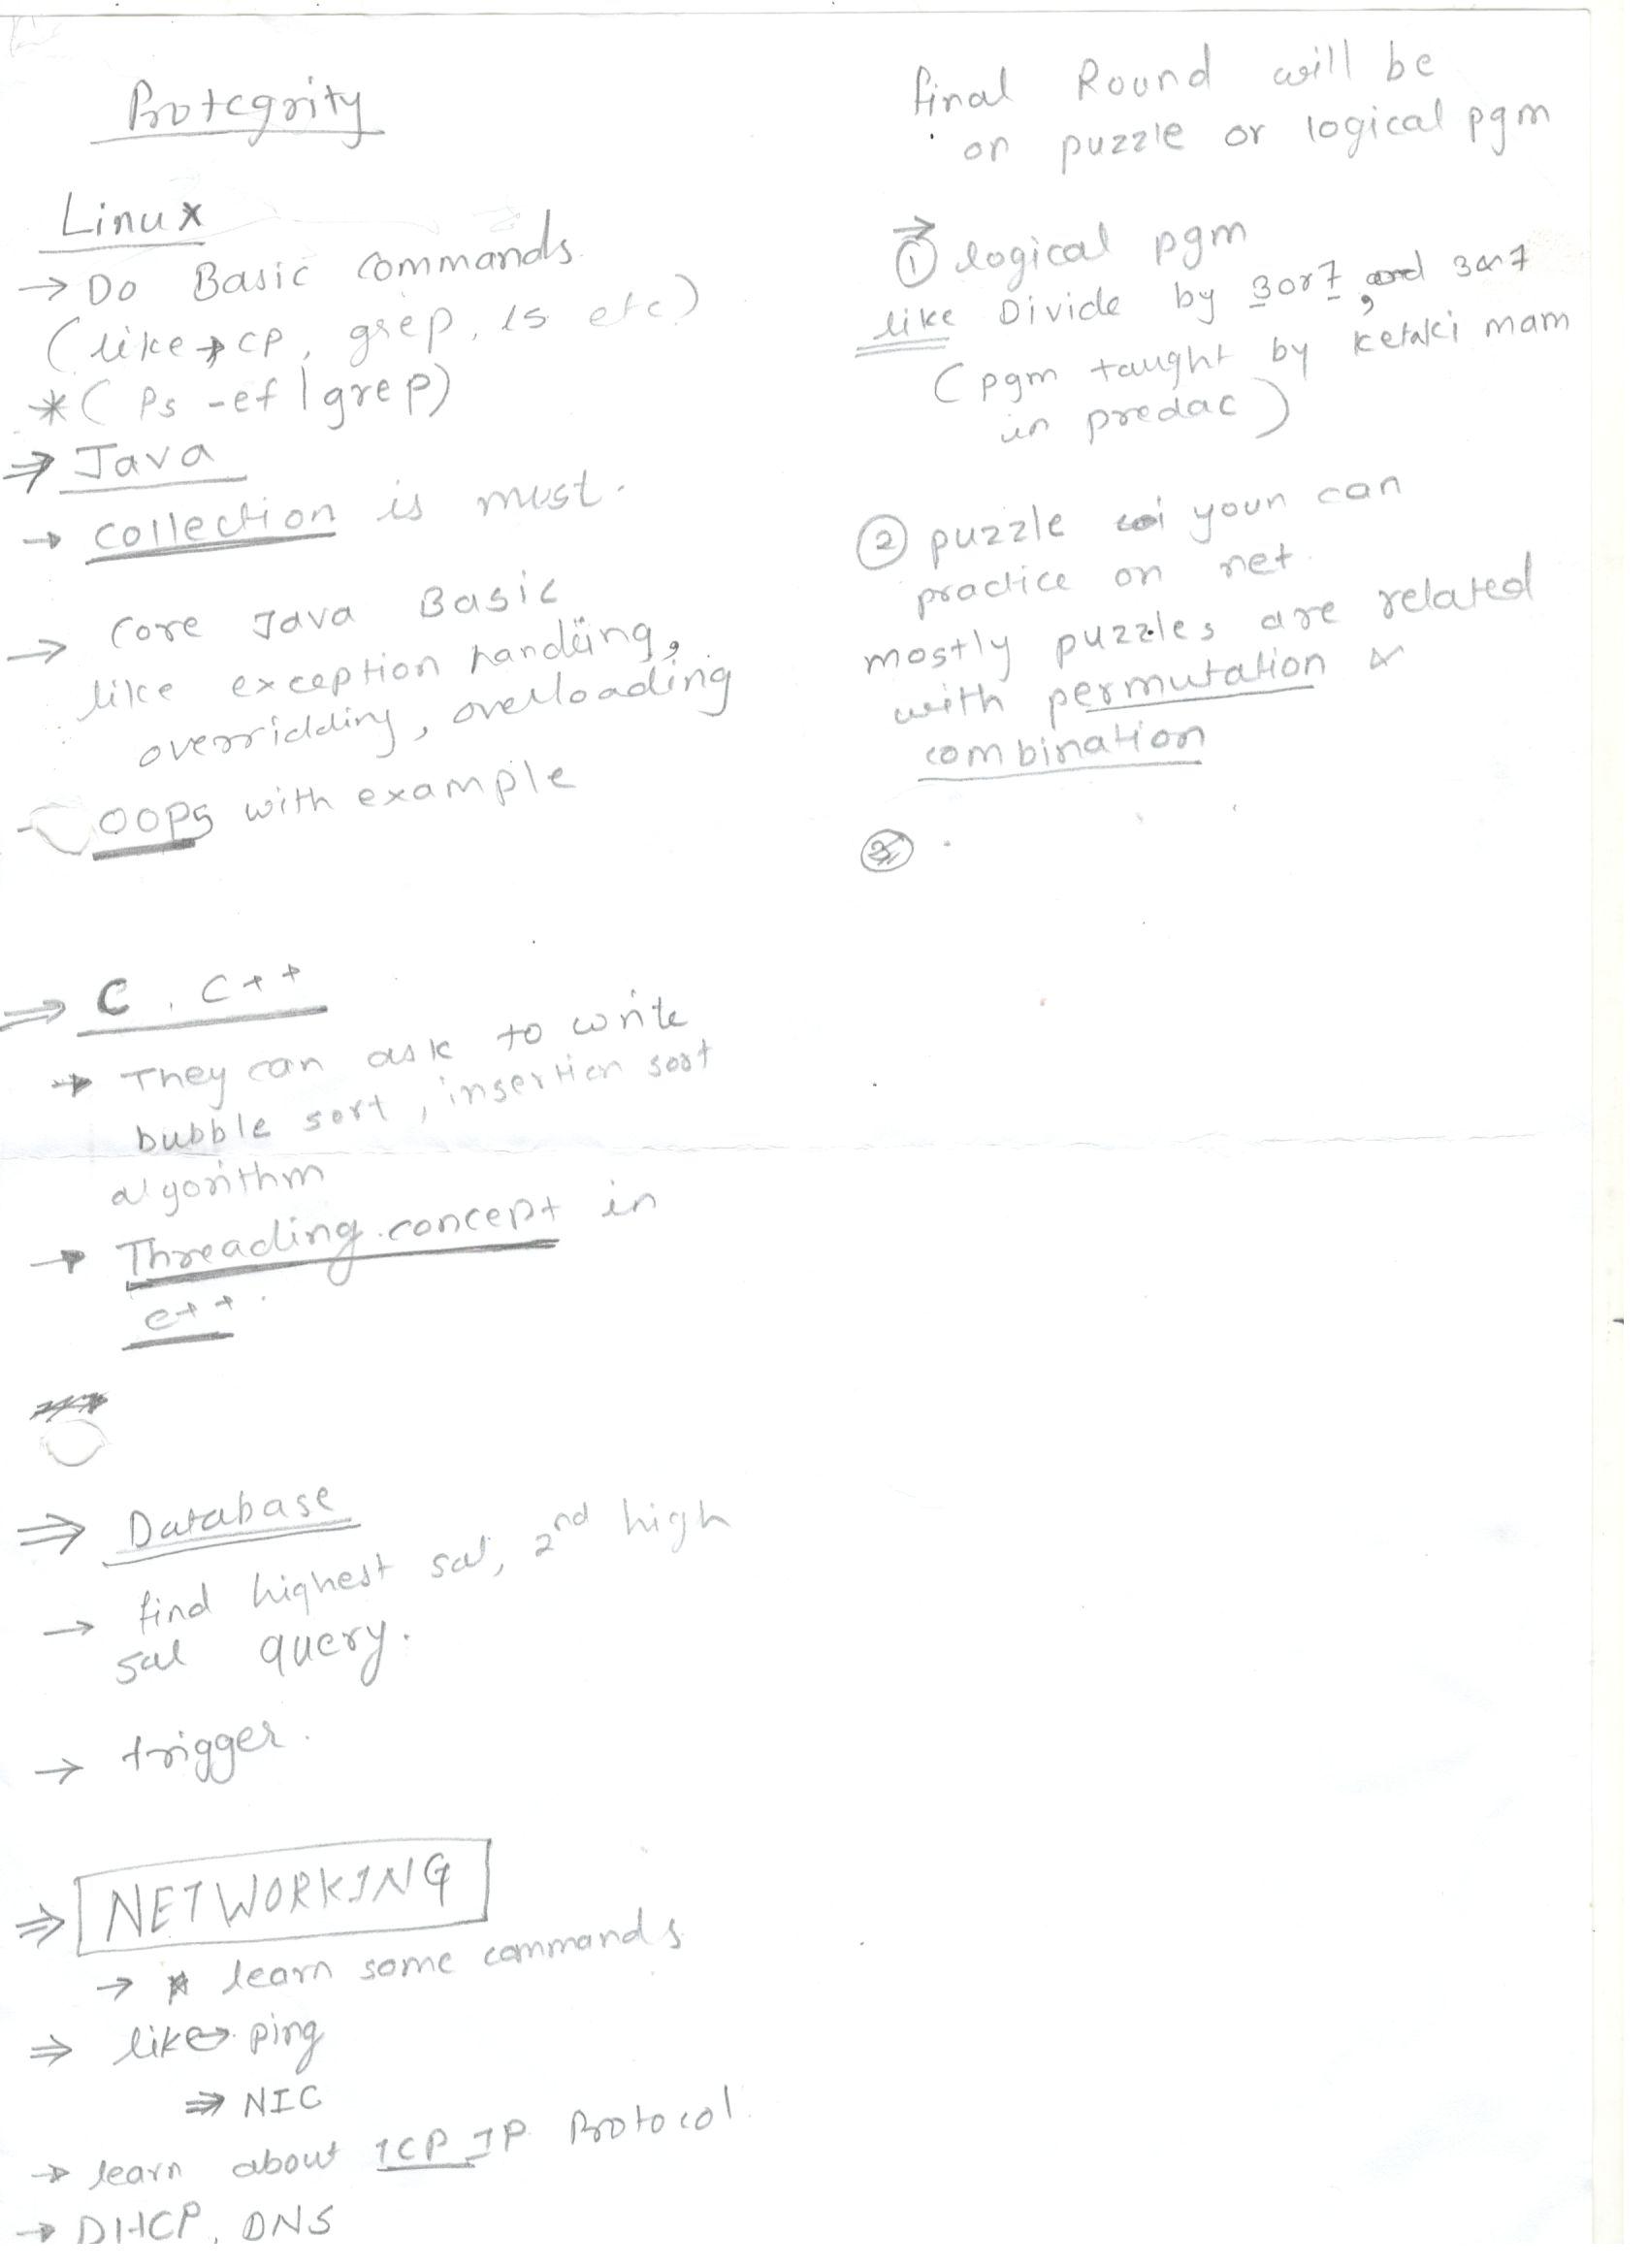 Protegrity
Linux
→ Do Basic commands.
(like → cp, grep, ls etc)
* (Ps -ef | grep)
⇒ Java
→ collection is must.
→ Core Java Basic
like exception handling,
overridding, overloading
- OOPS with example
⇒ C, C++
→ They can ask to write
bubble sort, insertion sort
algorithm
→ Threading concept in
c++.
⇒ Database
→ find highest sal, 2nd high
sal query.
→ trigger.
⇒ NETWORKING
→ * learn some commands
⇒ like → ping
⇒ NIC
→ learn about TCP IP Protocol.
→ DHCP, DNS
final Round will be
on puzzle or logical pgm
→
① logical pgm
like Divide by 3 or 7, and 3 & 7
(pgm taught by ketaki mam
in predac)
② puzzle youn can
practice on net.
mostly puzzles are related
with permutation &
combination